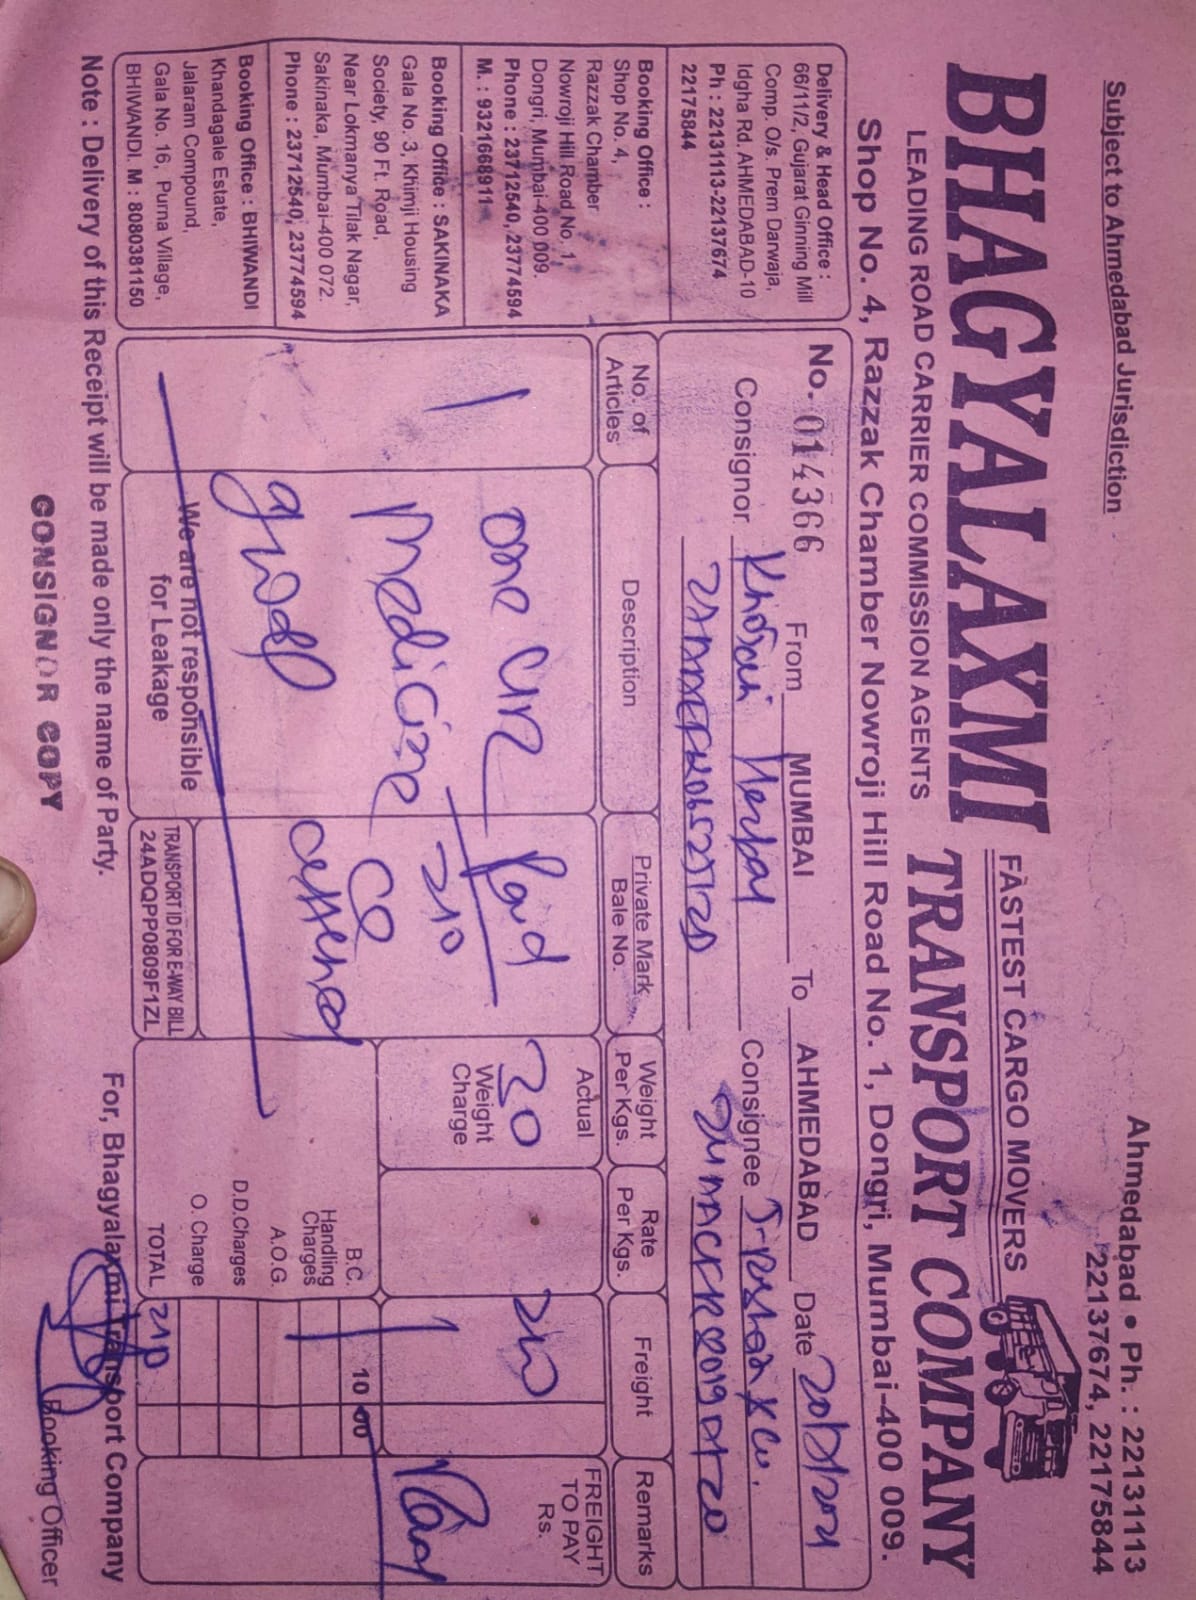 Subject to Ahmedabad Jurisdiction
Ahmedabad • Ph. : 22131113
22137674, 22175844
FASTEST CARGO MOVERS
BHAGYALAXMI TRANSPORT COMPANY
LEADING ROAD CARRIER COMMISSION AGENTS
Shop No. 4, Razzak Chamber Nowroji Hill Road No. 1, Dongri, Mumbai-400 009.
Delivery & Head Office :
66/11/2, Gujarat Ginning Mill
Comp. O/s. Prem Darwaja,
Idgha Rd. AHMEDABAD-10
Ph : 22131113-22137674
22175844
Booking Office :
Shop No. 4,
Razzak Chamber
Nowroji Hill Road No. 1,
Dongri, Mumbai-400 009.
Phone : 23712540, 23774594
M. : 9321668911
Booking Office : SAKINAKA
Gala No. 3, Khimji Housing
Society, 90 Ft. Road,
Near Lokmanya Tilak Nagar,
Sakinaka, Mumbai-400 072.
Phone : 23712540, 23774594
Booking Office : BHIWANDI
Khandagale Estate,
Jalaram Compound,
Gala No. 16, Purna Village,
BHIWANDI. M : 8080381150
No. 014366 From MUMBAI To AHMEDABAD Date
Consignor Consignee
No. of Articles
Description
Private Mark Bale No.
Weight Per Kgs.
Rate Per Kgs.
Freight
Remarks
1
one
Medicine
Paid
210
Actual
20
Weight Charge
210
FREIGHT TO PAY Rs.
Paid
B.C. 10 00
Handling Charges
A.O.G.
D.D.Charges
O. Charge
TOTAL 210
We are not responsible
for Leakage
TRANSPORT ID FOR E-WAY BILL
24ADQPP0809F1ZL
Note : Delivery of this Receipt will be made only the name of Party.
For, Bhagyalaxmi Transport Company
CONSIGNOR COPY
Booking Officer